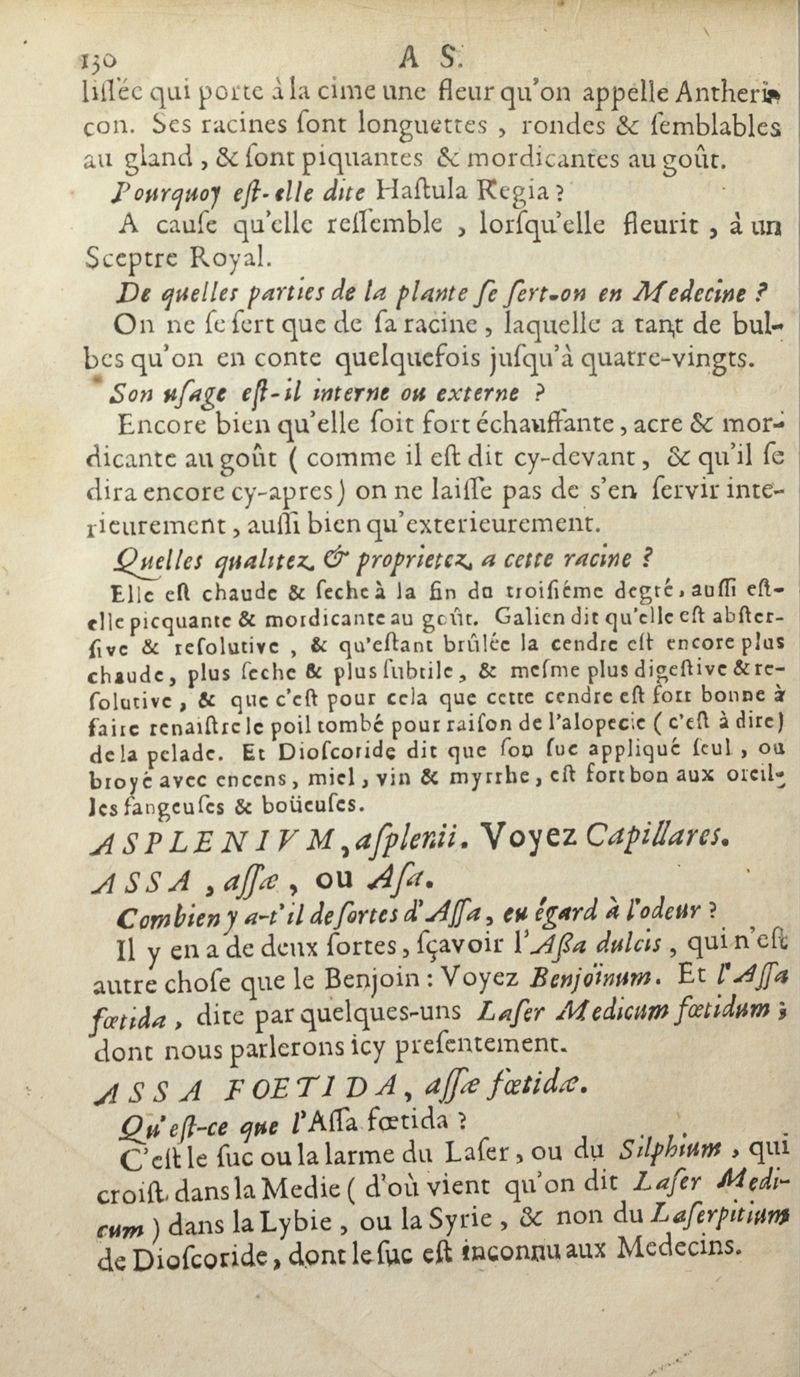 130 A S.
lissée qui porte à la cime une fleur qu'on appelle Antheri-
con. Ses racines ſont longuettes , rondes & ſemblables
au gland , & ſont piquantes & mordicantes au goût.
Pourquoy eſt-elle dite Haſtula Regia ?
A cauſe qu'elle reſſemble , lorſqu'elle fleurit , à un
Sceptre Royal.
De quelles parties de la plante ſe ſert-on en Medecine ?
On ne ſe ſert que de ſa racine , laquelle a tant de bul-
bes qu'on en conte quelquefois juſqu'à quatre-vingts.
Son uſage eſt-il interne ou externe ?
Encore bien qu'elle ſoit fort échauffante , acre & mor-
dicante au goût ( comme il eſt dit cy-devant , & qu'il ſe
dira encore cy-apres ) on ne laiſſe pas de s'en ſervir inte-
rieurement , auſſi bien qu'exterieurement.
Quelles qualitez & proprietez a cette racine ?
Elle eſt chaude & ſeche à la fin du troiſiéme degré, auſſi eſt-
elle picquante & mordicante au goût. Galien dit qu'elle eſt abſter-
ſive & reſolutive , & qu'eſtant brûlée la cendre eſt encore plus
chaude, plus ſeche & plus ſubtile, & meſme plus digeſtive & re-
ſolutive , & que c'eſt pour cela que cette cendre eſt fort bonne à
faire renaiſtre le poil tombé pour raiſon de l'alopecie ( c'eſt à dire )
de la pelade. Et Dioſcoride dit que ſon ſuc appliqué ſeul , ou
broyé avec encens, miel, vin & myrrhe, eſt fort bon aux oreil-
les fangeuſes & boüeuſes.
ASPLENIVM, aſplenii. Voyez Capillares.
ASSA , aſſæ , ou Aſa.
Combien y a-t'il de ſortes d'Aſſa, eu égard à l'odeur ?
Il y en a de deux ſortes, ſçavoir l'Aſſa dulcis , qui n'eſt
autre choſe que le Benjoin : Voyez Benjoïnum. Et l'Aſſa
fœtida , dite par quelques-uns Laſer Medicum fœtidum ;
dont nous parlerons icy preſentement.
ASSA FOETIDA, aſſæ fœtidæ.
Qu'eſt-ce que l'Aſſa fœtida ?
C'eſt le ſuc ou la larme du Laſer , ou du Silphium , qui
croiſt dans la Medie ( d'où vient qu'on dit Laſer Medi-
cum ) dans la Lybie , ou la Syrie , & non du Laſerpitium
de Dioſcoride, dont le ſuc eſt inconnu aux Medecins.